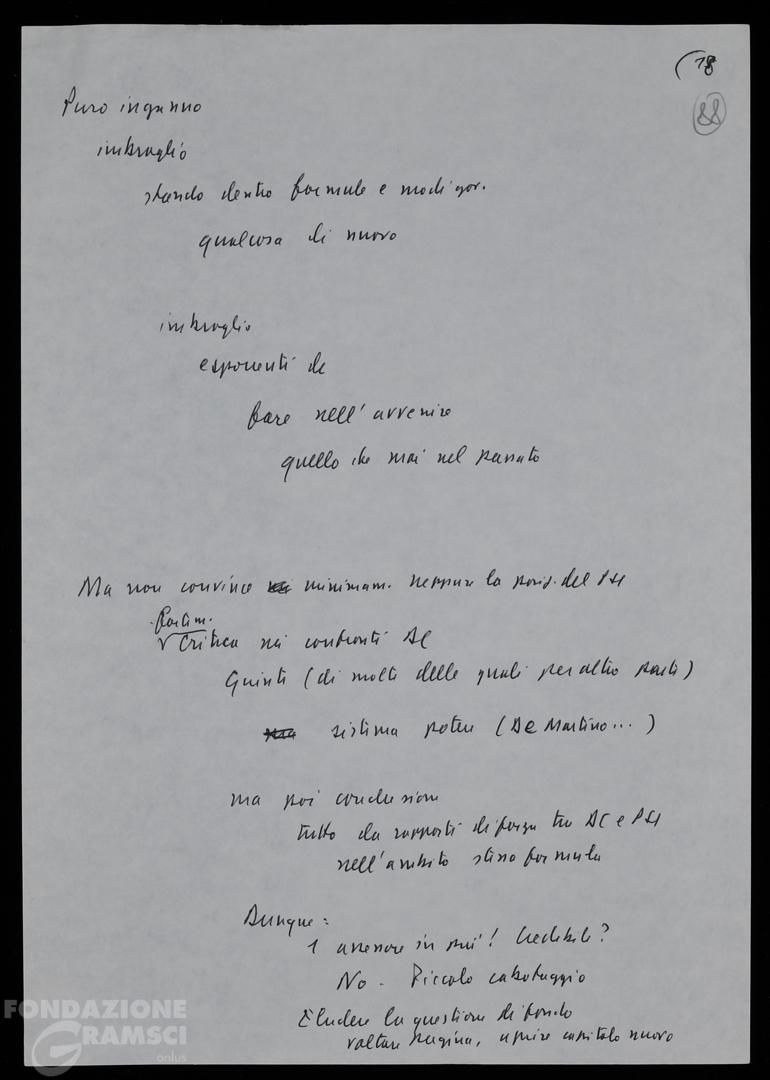 (18
88
Puro inganno
imbroglio
stando dentro formule e modi gov.
qualcosa di nuovo
imbroglio
esponenti dc
fare nell'avvenire
quello che mai nel passato
Ma non convince minimam. neppure la posiz. del PSI
Critica nei confronti DC
Giunte (di molte delle quali peraltro parte)
sistema potere (De Martino...)
ma poi conclusione
tutto da rapporti di forza tra DC e PSI
nell'ambito stessa formula
Dunque:
1 assessore in più! Credibile?
No - Piccolo cabotaggio
Eludere la questione di fondo
voltare pagina, aprire capitolo nuovo
FONDAZIONE
GRAMSCI
onlus